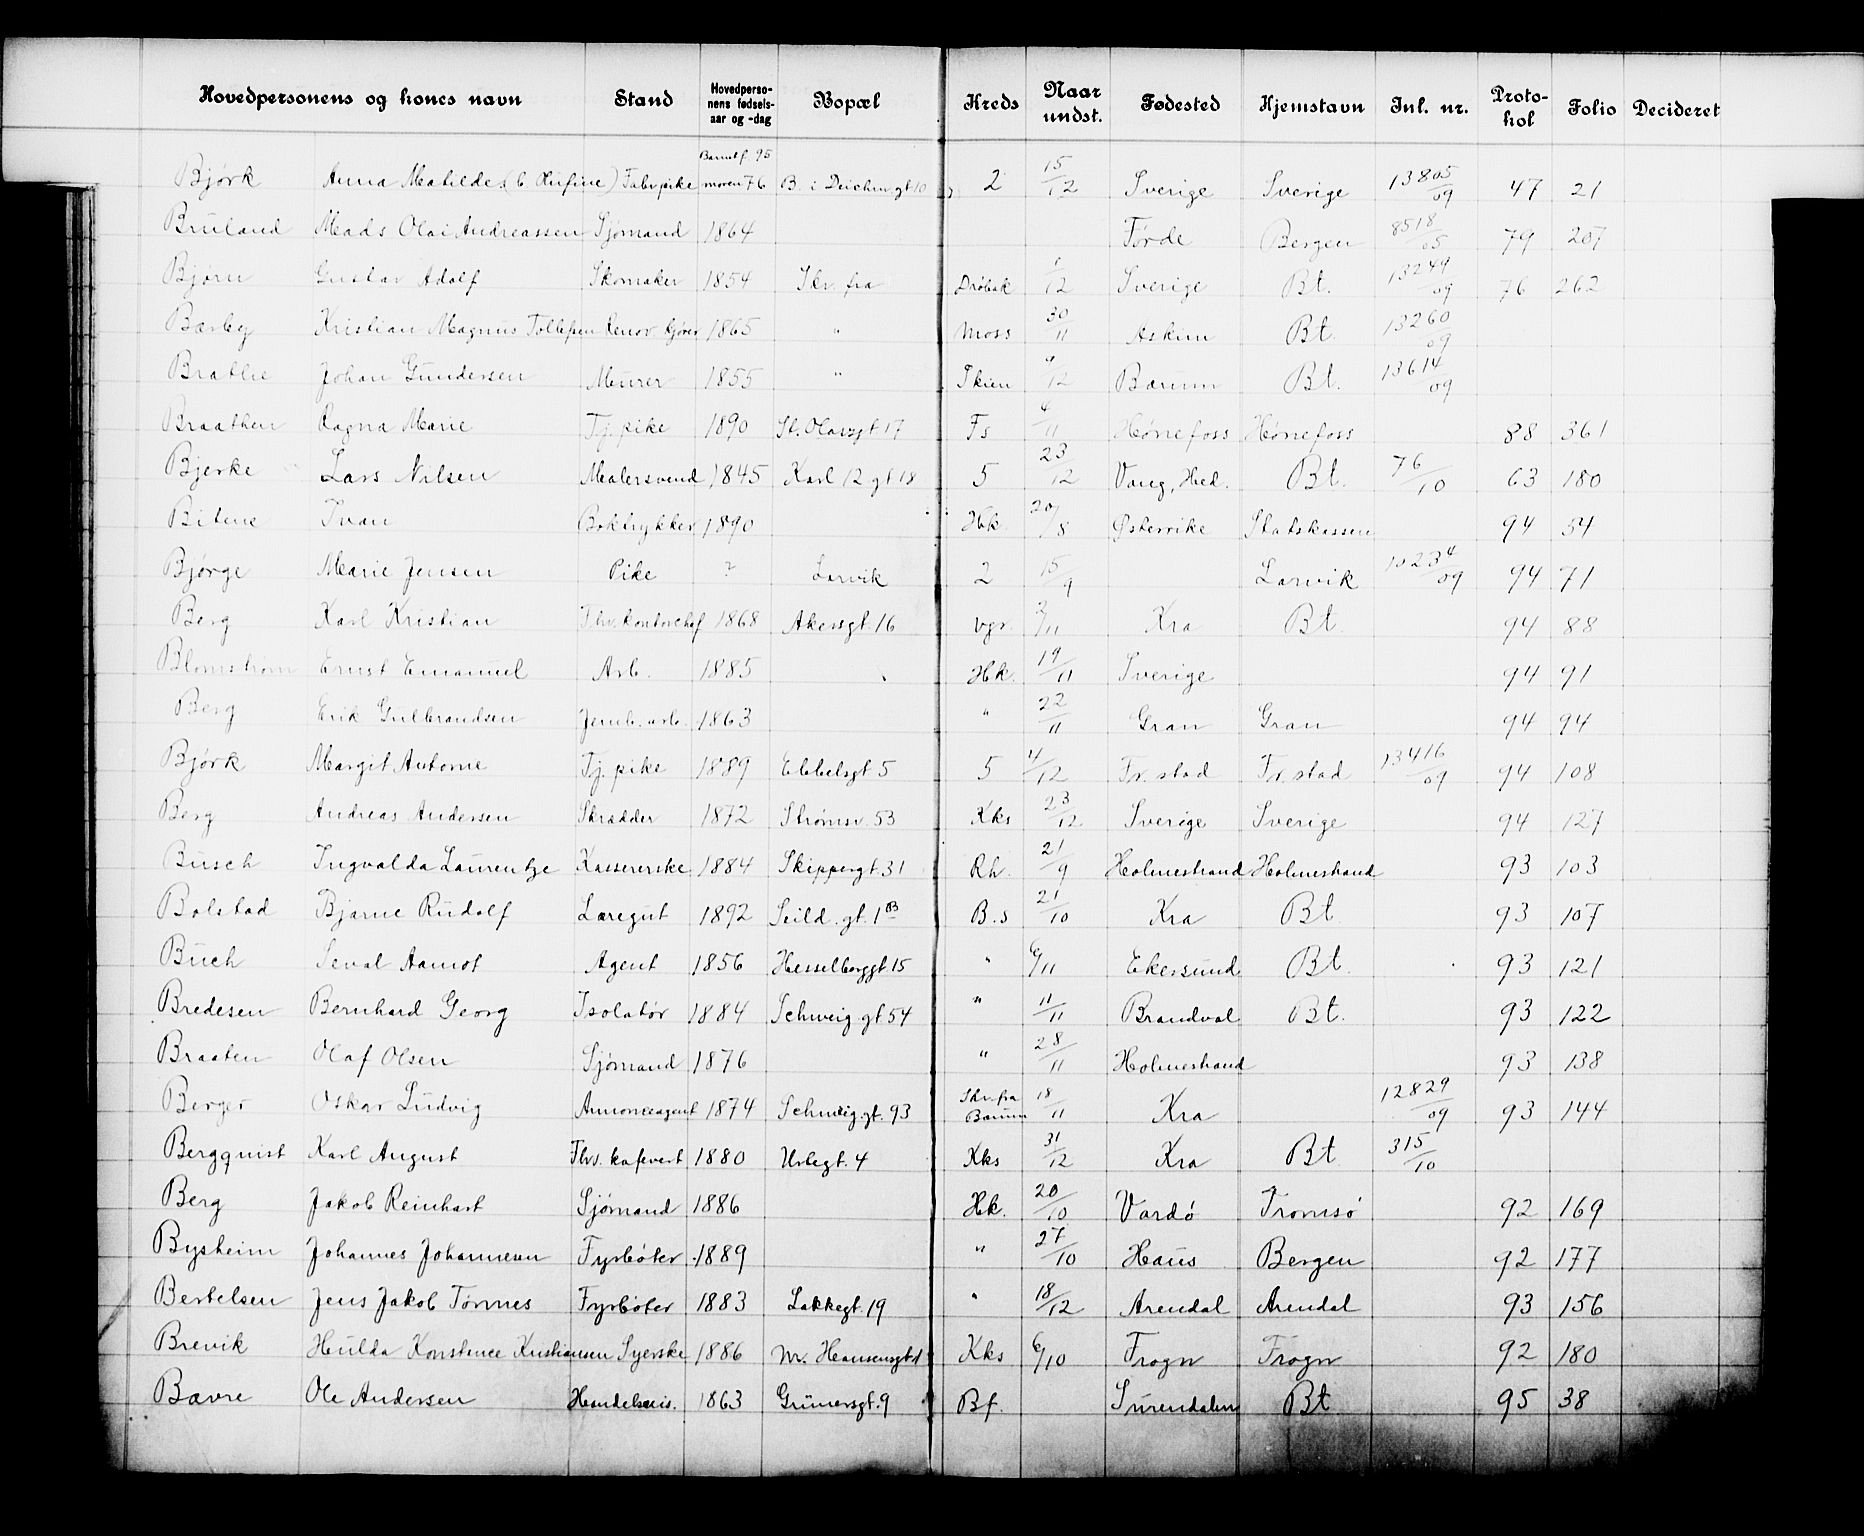 Hovedpersonens og kones navn Stand Hovedperso-nens fødsels-aar og -dag Bopæl Kreds Naar undst. Fødested Hjemstavn Inl. nr. Proto-kol Folio Decideret
Bjørk Anna Matilde Fabrpike Barnet f. 95 moren 76 B. i Deichm.gt 10 2 15/12 Sverige Sverige 13805/09 47 21
Bruland Mads Olai Andreassen Sjømand 1864 Førde Bergen 8518/05 79 207
Bjørn Gustav Adolf Skomaker 1854 Skr. fra Drøbak /12 Sverige Bt. 13249/09 76 262
Bærby Kristian Magnus Tollefsen Renov. kjører 1865 " Moss 30/11 Askim Bt. 13260/09
Brathe Johan Gundersen Murer 1855 " Skien /12 Bærum Bt. 13614/09
Braathen Ragna Marie Tj. pike 1890 St. Olavsgt 17 Fs 4/11 Hønefoss Hønefoss 88 361
Bjerke Lars Nilsen Malersvend 1845 Karl 12 gt 18 5 23/12 Vang, Hed. Bt. 76/10 63 180
Bitene Ivan Boktrykker 1890 Hk. 20/8 Østerrike Statskassen 94 54
Bjørge Marie Jensen Pike ? Larvik 2 15/9 Larvik 10234/09 94 71
Berg Karl Kristian Fhv. kontorchef 1868 Akersgt. 16 Vgr. 2/11 Kra Bt. 94 88
Blomstrøm Ernst Emanuel Arb. 1885 Hk. 19/11 Sverige 94 91
Berg Erik Gulbrandsen Jernb. arb. 1863 " 22/11 Gran Gran 94 94
Bjørk Margit Antonie Tj. pike 1889 Ebbelsgt 5 5 4/12 Fr. stad Fr. stad 13416/09 94 108
Berg Andreas Andersen Skrædder 1872 Strømsv. 53 Kks 23/12 Sverige Sverige 94 127
Busch Ingvalda Laurentze Kassererske 1884 Skippergt. 31 Rh. 21/9 Holmestrand Holmestrand 93 103
Bolstad Bjarne Rudolf Læregut 1892 Seild. gt. 1B B.s 21/10 Kra Bt. 93 107
Buch Seval Aamot Agent 1856 Hesselberggt 15 " 6/11 Ekersund Bt. 93 121
Bredesen Bernhard Georg Isolatør 1884 Schweig. gt 54 " 11/11 Brandval Bt. 93 122
Braaten Olaf Olsen Sjømand 1876 " 28/11 Holmestrand 93 138
Berger Oskar Ludvig Annonceagent 1874 Schweig.gt. 93 Skr. fra Bærum 18/11 Kra 12829/09 93 144
Bergquist Karl August Fhv. kafevert 1880 Urtegt. 4 Kks 31/12 Kra Bt. 315/10
Berg Jakob Reinhart Sjømand 1886 Hk. 20/10 Vardø Tromsø 92 169
Bysheim Johannes Johannesen Fyrbøter 1889 " 27/10 Haus Bergen 92 177
Bertelsen Jens Jakob Tønnes Fyrbøter 1883 Lakkegt. 19 " 18/12 Arendal Arendal 93 156
Brevik Hulda Konstence Kristiansen Syerske 1886 Kks 6/10 Frogn Frogn 92 180
Bævre Ole Andersen Handelsreis. 1863 Grünersgt. 9 Bf. Surendalen Bt. 95 38